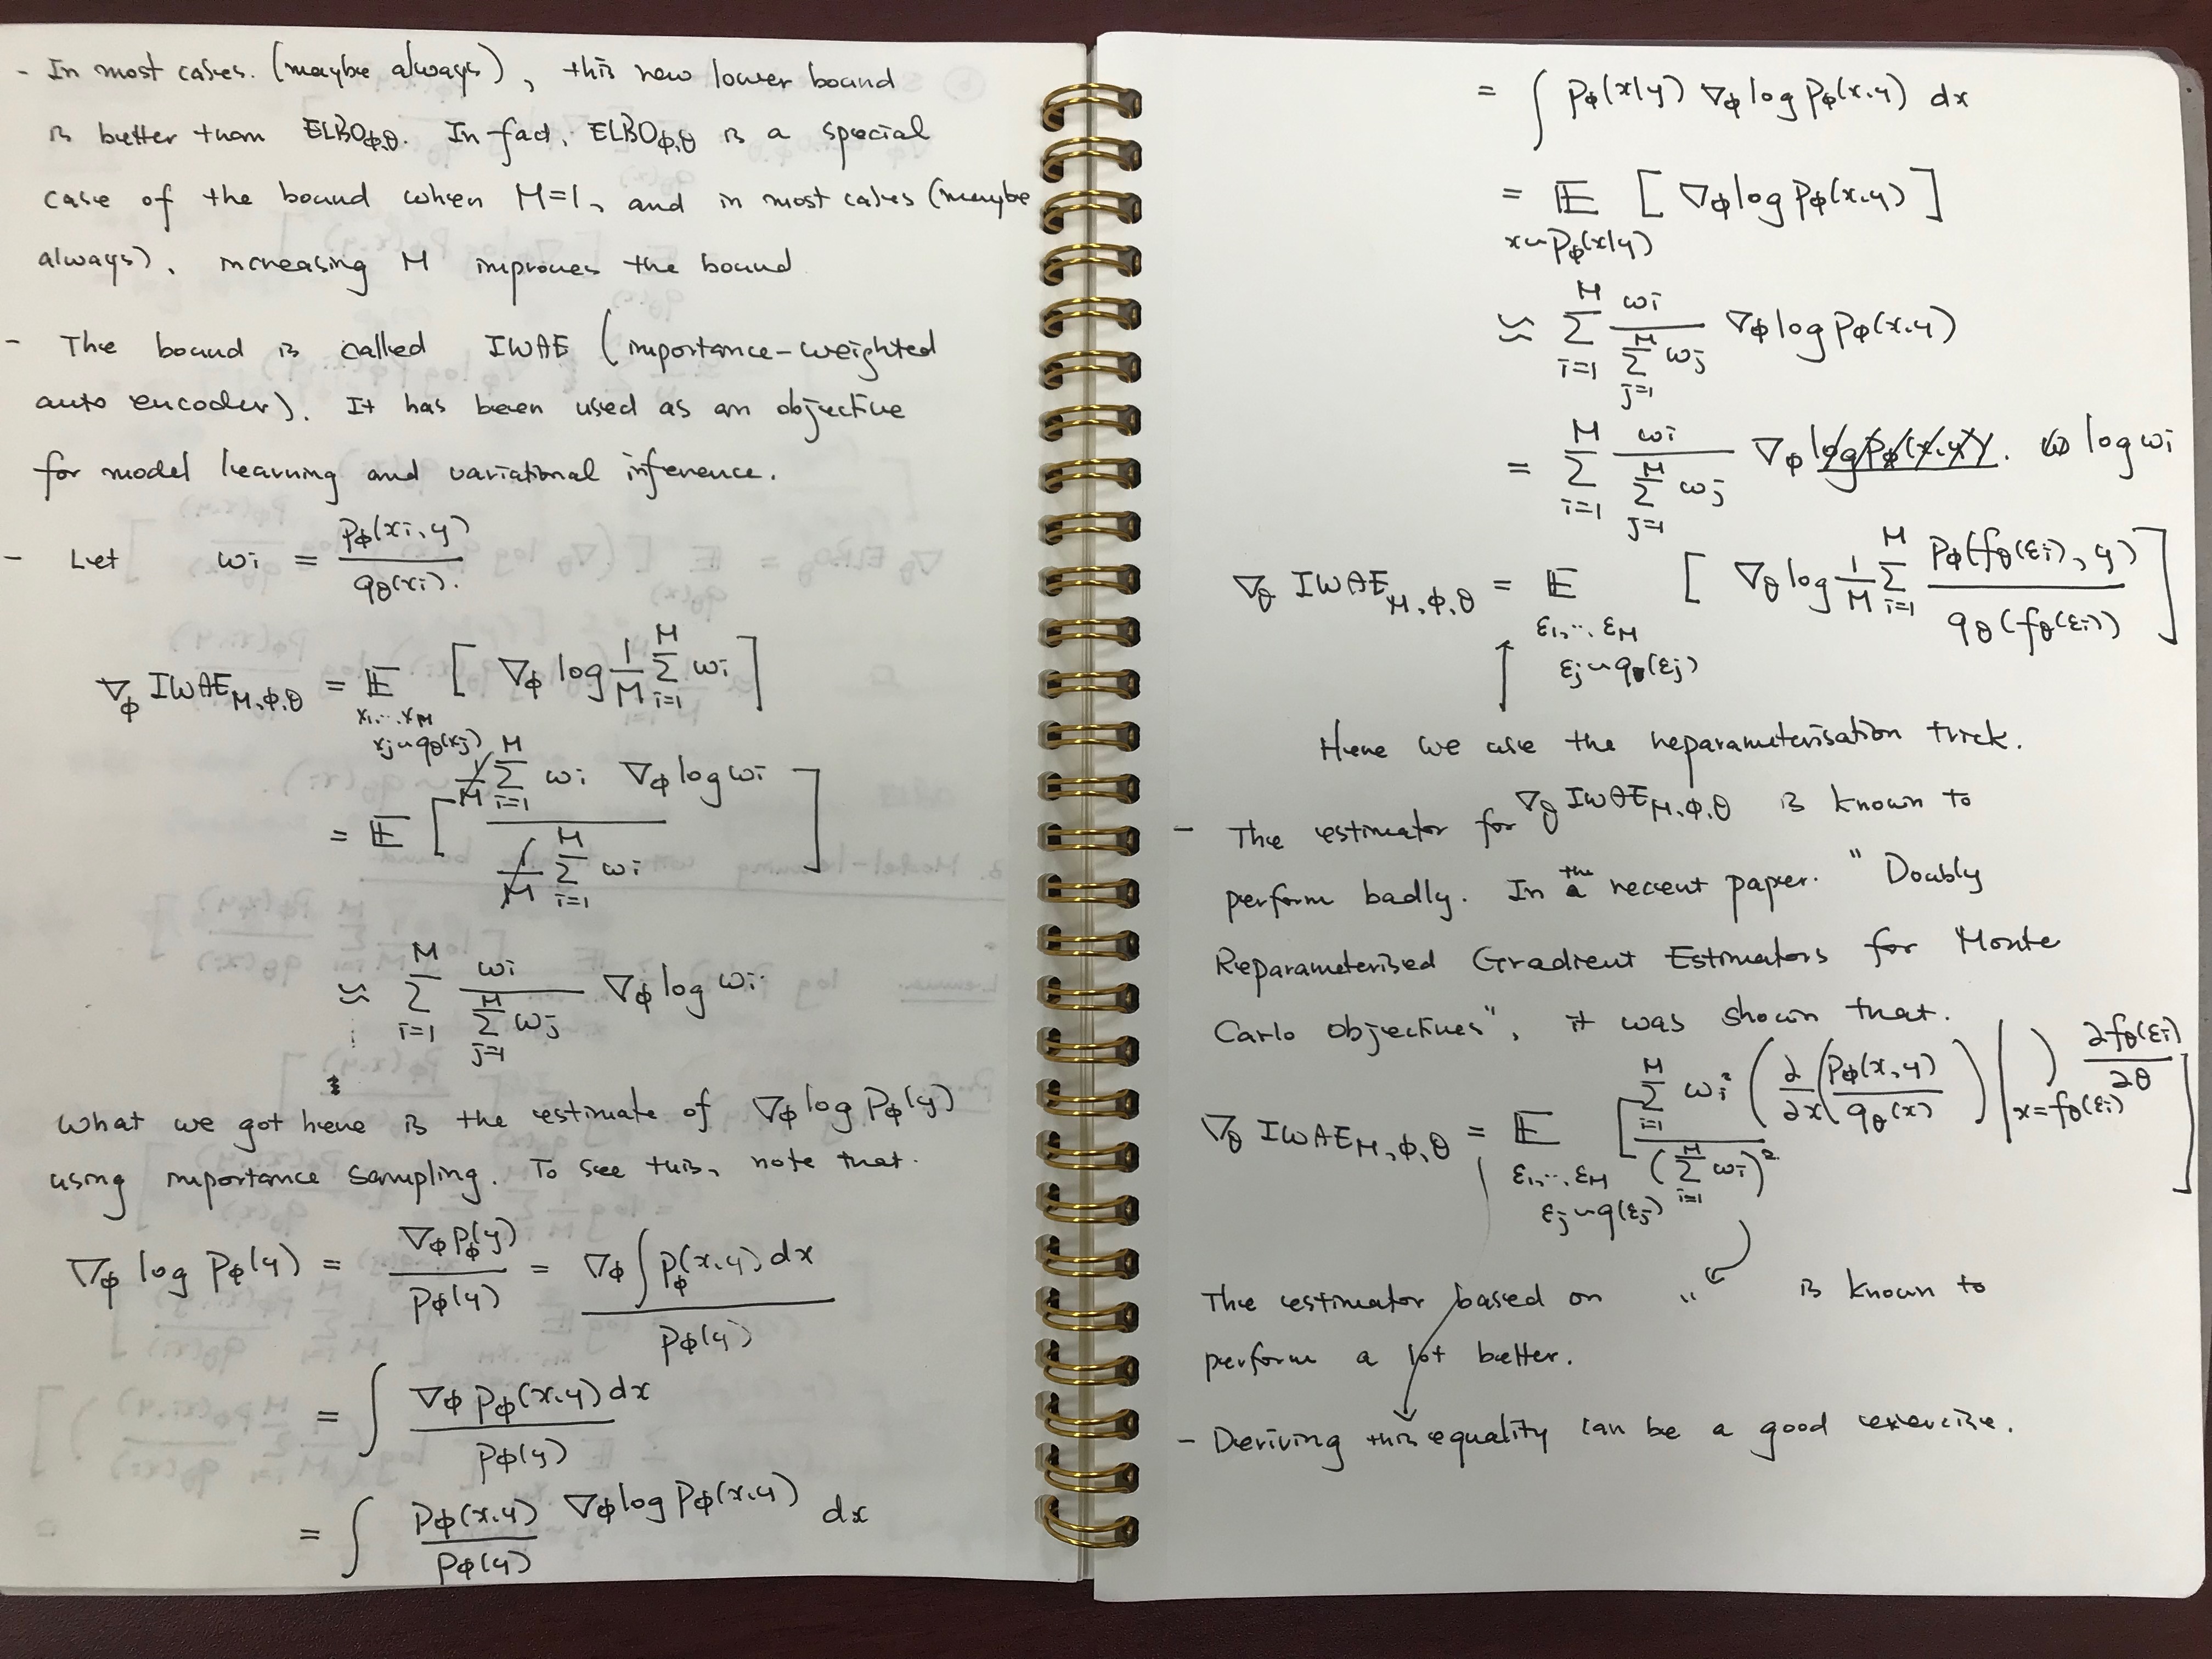 - In most cases. (maybe always), this new lower bound
is better than ELBO_{φ,θ}. In fact, ELBO_{φ,θ} is a special
case of the bound when M=1, and in most cases (maybe
always), increasing M improves the bound
- The bound is called IWAE (importance-weighted
auto encoder). It has been used as an objective
for model learning and variational inference.
- Let w_i = p_φ(x_i, y) / q_θ(x_i).
∇_φ IWAE_{M,φ,θ} = 𝔼_{x_1,...,x_M, x_j ~ q_θ(x_j)} [ ∇_φ log 1/M Σ_{i=1}^M w_i ]
= 𝔼 [ 1/M Σ_{i=1}^M w_i ∇_φ log w_i / 1/M Σ_{i=1}^M w_i ]
≈ Σ_{i=1}^M w_i / Σ_{j=1}^M w_j ∇_φ log w_i
What we got here is the estimate of ∇_φ log p_φ(y)
using importance sampling. To see this, note that.
∇_φ log p_φ(y) = ∇_φ p_φ(y) / p_φ(y) = ∇_φ ∫ p_φ(x,y) dx / p_φ(y)
= ∫ ∇_φ p_φ(x,y) dx / p_φ(y)
= ∫ p_φ(x,y) / p_φ(y) ∇_φ log p_φ(x,y) dx
= ∫ p_φ(x|y) ∇_φ log p_φ(x,y) dx
= 𝔼_{x ~ p_φ(x|y)} [ ∇_φ log p_φ(x,y) ]
≈ Σ_{i=1}^M w_i / Σ_{j=1}^M w_j ∇_φ log p_φ(x,y)
= Σ_{i=1}^M w_i / Σ_{j=1}^M w_j ∇_φ log p_φ(x,y). log w_i
∇_θ IWAE_{M,φ,θ} = 𝔼_{ε_1,...,ε_M, ε_j ~ q(ε_j)} [ ∇_θ log 1/M Σ_{i=1}^M p_φ(f_θ(ε_i), y) / q_θ(f_θ(ε_i)) ]
Here we use the reparameterisation trick.
- The estimator for ∇_θ IWAE_{M,φ,θ} is known to
perform badly. In the a recent paper. "Doubly
Reparameterised Gradient Estimators for Monte
Carlo Objectives", it was shown that.
∇_θ IWAE_{M,φ,θ} = 𝔼_{ε_1,...,ε_M, ε_j ~ q(ε_j)} [ Σ_{i=1}^M w_i² ( ∂/∂x ( p_φ(x,y) / q_θ(x) ) |_{x=f_θ(ε_i)} ) / ( Σ_{i=1}^M w_i )² ∂f_θ(ε_i)/∂θ ]
The estimator based on " is known to
perform a lot better.
- Deriving this equality can be a good exercise.